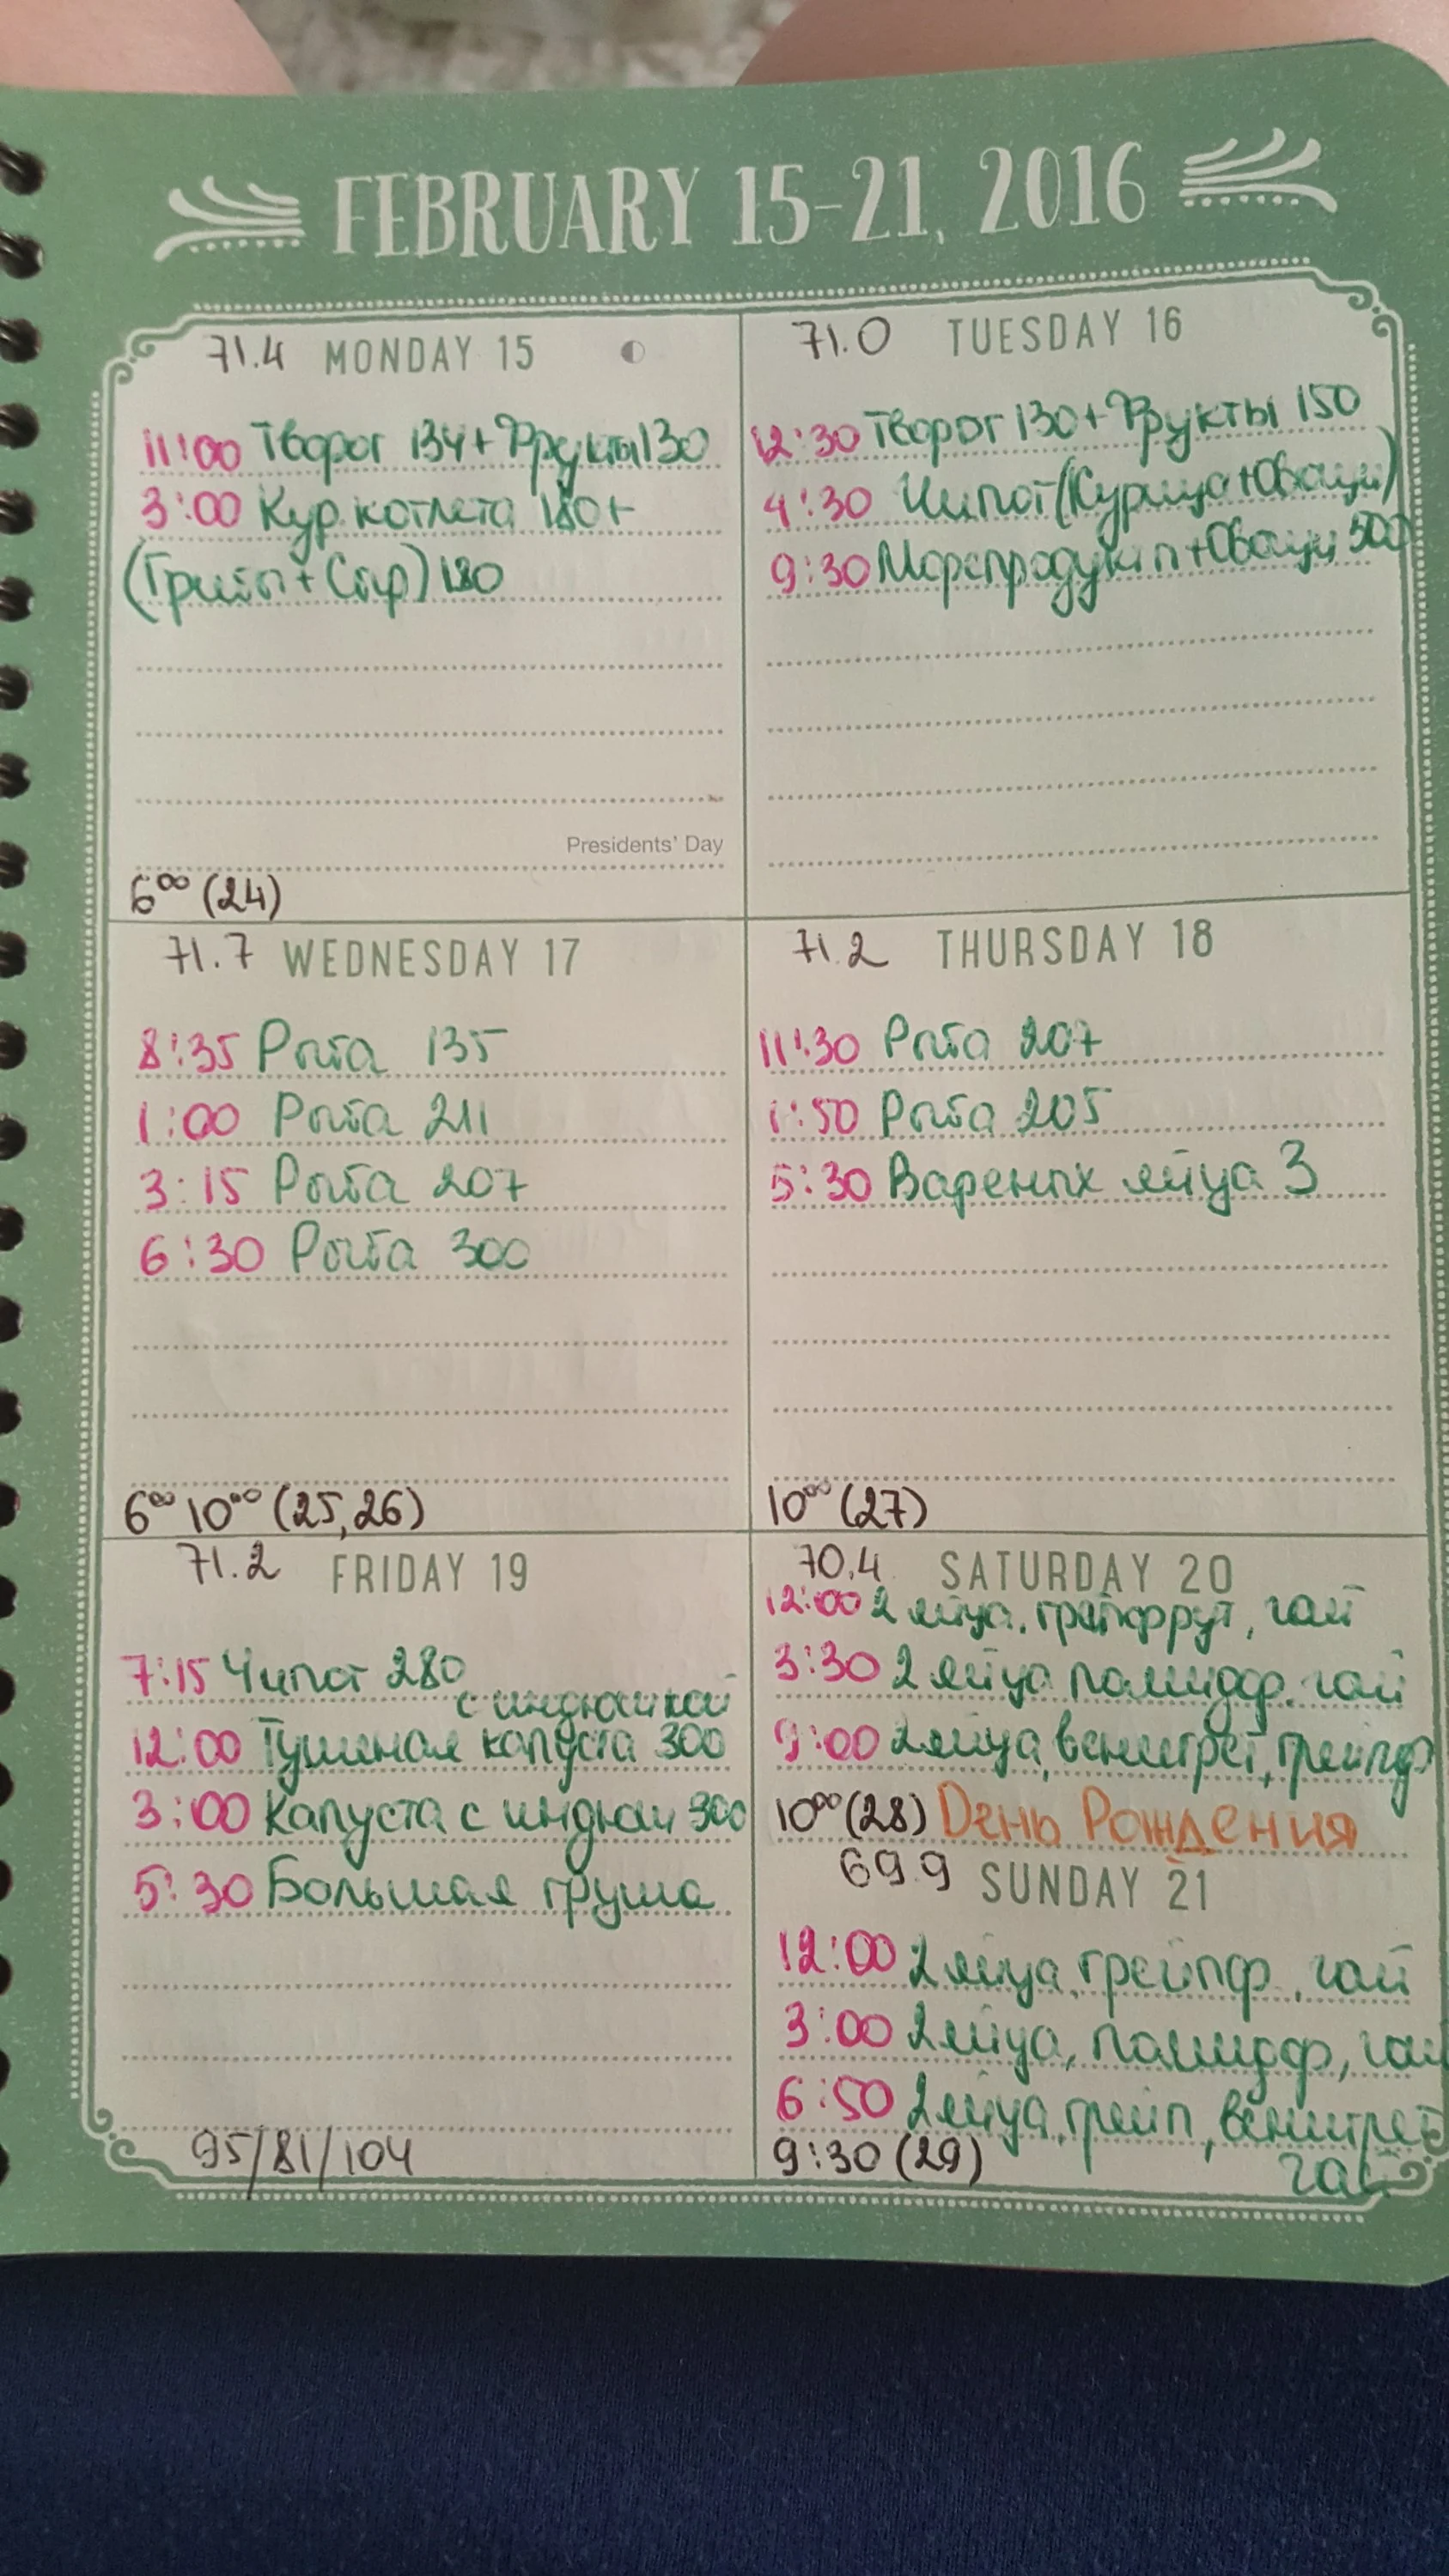 FEBRUARY 15-21, 2016
71.4 MONDAY 15
11:00 Творог 134+Фрукты 130
3:00 Кур. котлета 180+
(Грийп+Сыр) 180
Presidents' Day
6⁰⁰ (24)
71.0 TUESDAY 16
12:30 Творог 130+Фрукты 150
4:30 Чипот(Курица+Овощи)
9:30 Морепродукты+Овощи 500
71.7 WEDNESDAY 17
8:35 Рыба 135
1:00 Рыба 211
3:15 Рыба 207
6:30 Рыба 300
6⁰⁰ 10⁰⁰ (25,26)
71.2 THURSDAY 18
11:30 Рыба 207
1:50 Рыба 205
5:30 Вареных яйца 3
10⁰⁰ (27)
71.2 FRIDAY 19
7:15 Чипот 280
с индюшкой
12:00 Тушеная капуста 300
3:00 Капуста с индюш 300
5:30 Большая груша
95/81/104
70.4 SATURDAY 20
12:00 2 яйца, грейпфрут, чай
3:30 2 яйца помидор. чай
9:00 2 яйца, венигрет, грейпф
10⁰⁰ (28) День Рождения
69.9 SUNDAY 21
12:00 2 яйца, грейпф, чай
3:00 2 яйца, помидор, чай
6:50 2 яйца, грейп, венигрет
9:30 (29) чай